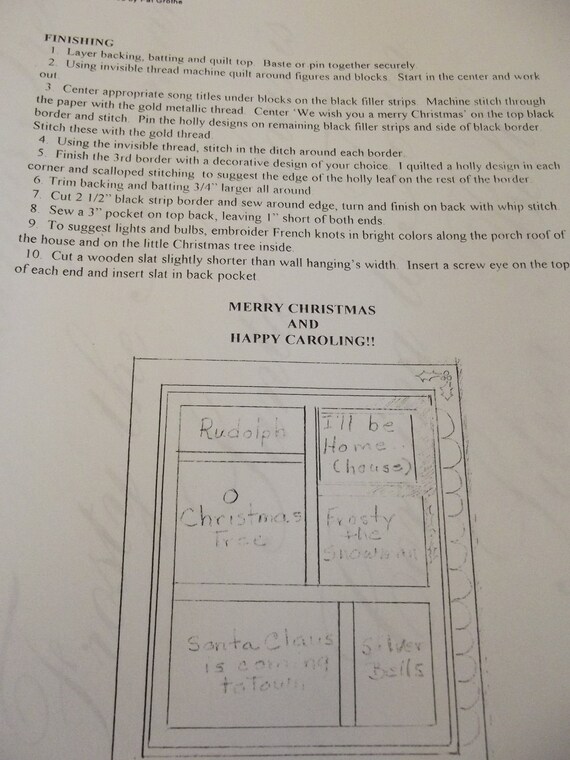 by Pat Grothe
FINISHING
1. Layer backing, batting and quilt top. Baste or pin together securely.
2. Using invisible thread machine quilt around figures and blocks. Start in the center and work
out.
3. Center appropriate song titles under blocks on the black filler strips. Machine stitch through
the paper with the gold metallic thread. Center 'We wish you a merry Christmas' on the top black
border and stitch. Pin the holly designs on remaining black filler strips and side of black border.
Stitch these with the gold thread.
4. Using the invisible thread, stitch in the ditch around each border.
5. Finish the 3rd border with a decorative design of your choice. I quilted a holly design in each
corner and scalloped stitching to suggest the edge of the holly leaf on the rest of the border.
6. Trim backing and batting 3/4" larger all around.
7. Cut 2 1/2" black strip border and sew around edge, turn and finish on back with whip stitch.
8. Sew a 3" pocket on top back, leaving 1" short of both ends.
9. To suggest lights and bulbs, embroider French knots in bright colors along the porch roof of
the house and on the little Christmas tree inside.
10. Cut a wooden slat slightly shorter than wall hanging's width. Insert a screw eye on the top
of each end and insert slat in back pocket.
MERRY CHRISTMAS
AND
HAPPY CAROLING!!
Rudolph
I'll be
Home
(house)
O
Christmas
Tree
Frosty
the
Snowman
Santa Claus
is coming
to Town
Silver
Bells